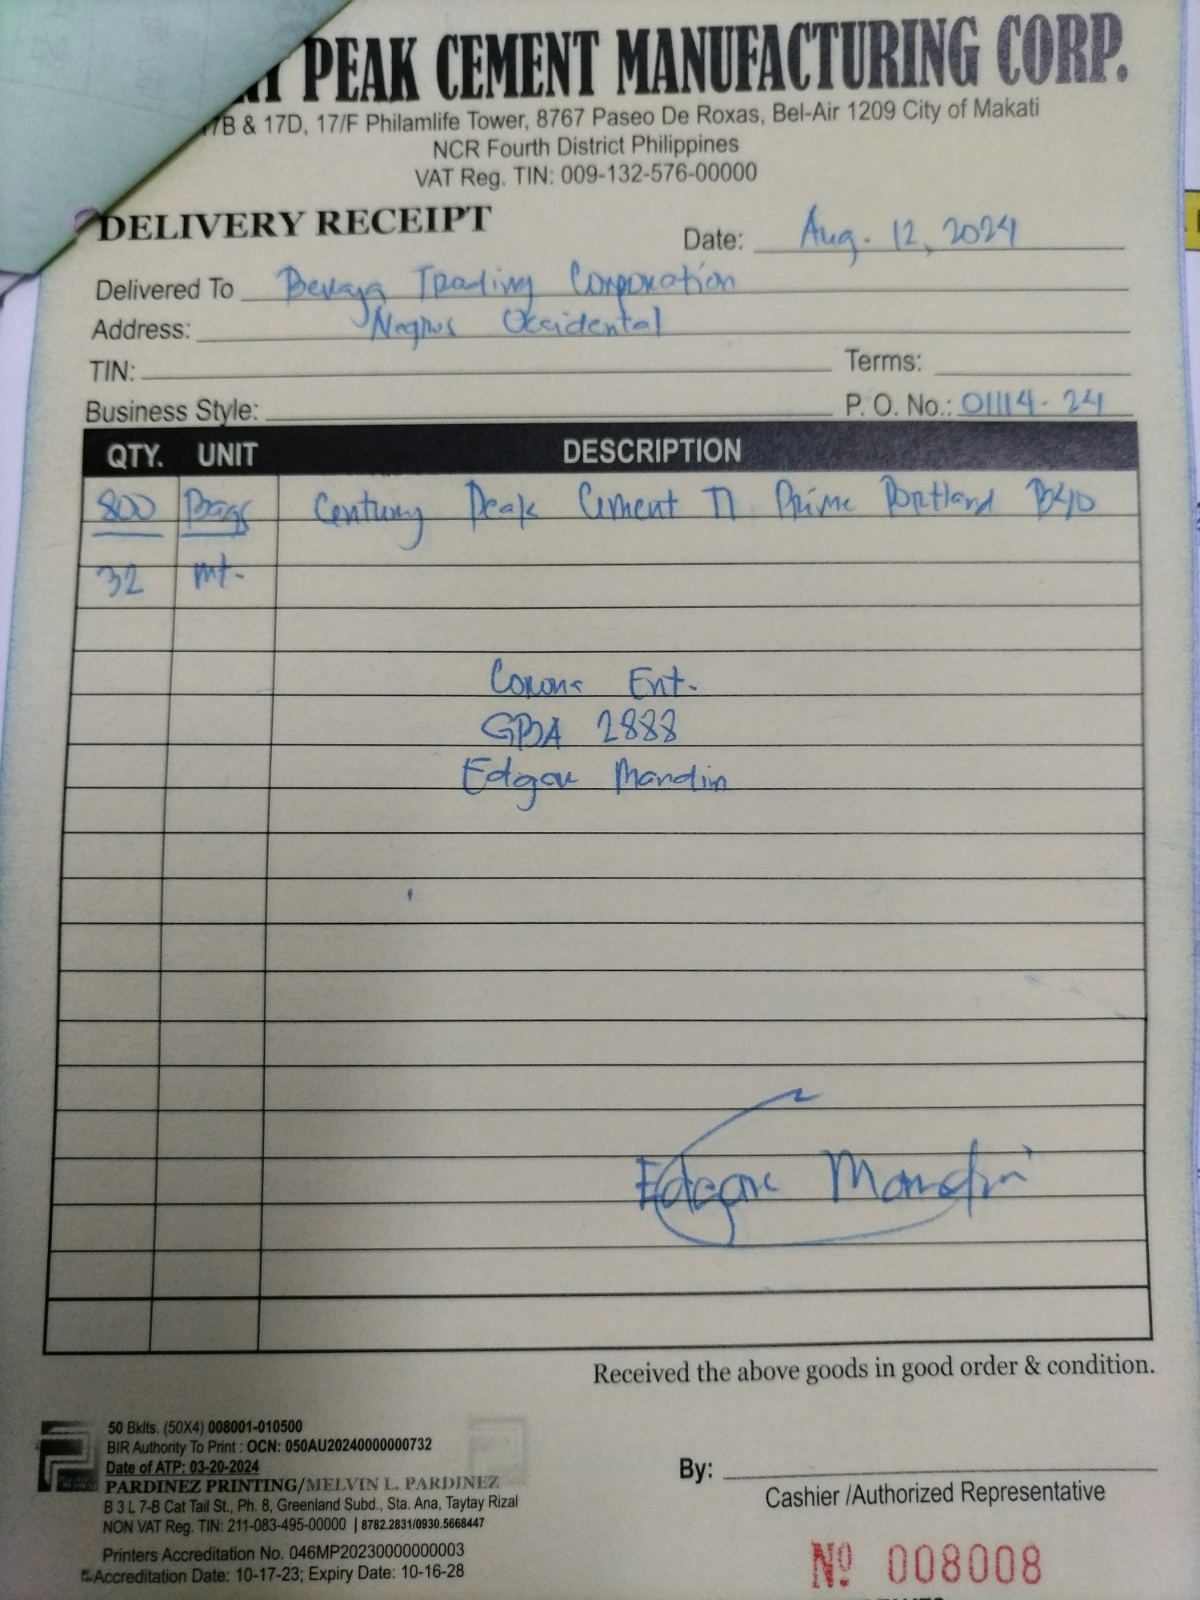 PEAK CEMENT MANUFACTURING CORP.
17B & 17D, 17/F Philamlife Tower, 8767 Paseo De Roxas, Bel-Air 1209 City of Makati
NCR Fourth District Philippines
VAT Reg. TIN: 009-132-576-00000
DELIVERY RECEIPT
Date: Aug. 12, 2024
Delivered To Trading Corporation
Address: Negros Occidental
TIN: Terms:
Business Style: P. O. No.: 01114-24
QTY. UNIT DESCRIPTION
800 Bags Century Peak Cement Prime Portland B40
32 mt.
Corona Ent.
2888
Edgar Mandin
Edgar Mandin
Received the above goods in good order & condition.
50 Bklts. (50X4) 008001-010500
BIR Authority To Print : OCN: 050AU20240000000732
Date of ATP: 03-20-2024
PARDINEZ PRINTING/MELVIN L. PARDINEZ
B 3 L 7-B Cat Tail St., Ph. 8, Greenland Subd., Sta. Ana, Taytay Rizal
NON VAT Reg. TIN: 211-083-495-00000 | 8782.2831/0930.5668447
Printers Accreditation No. 046MP20230000000003
Accreditation Date: 10-17-23; Expiry Date: 10-16-28
By:
Cashier /Authorized Representative
Nº 008008